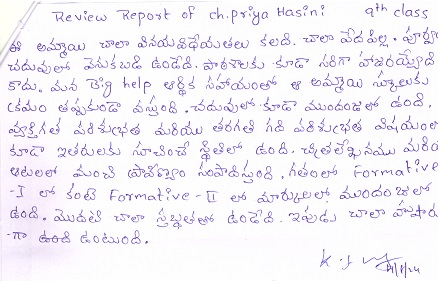 Review Report of ch.priya Hasini 9th class
ఈ అమ్మాయి చాలా వినయవిధేయతలు కలది. చాలా పేదపిల్ల. పూర్వం
చదువులో వెనుకబడి ఉండేది. పాఠశాలకు కూడా సరిగా హాజరయ్యేది
కాదు. మన Big help ఆర్థిక సహాయంతో ఆ అమ్మాయి స్కూలుకు
క్రమం తప్పకుండా వస్తుంది. చదువులో కూడా ముందంజలో ఉంది.
వ్యక్తిగత పరిశుభ్రత మరియు తరగతి గది పరిశుభ్రత విషయంలో
కూడా ఇతరులకు సూచించే స్థితిలో ఉంది. చిత్రలేఖనము మరియు
ఆటలలో మంచి ప్రావీణ్యం సంపాదిస్తుంది. గతంలో Formative
-I లో కంటే Formative - II లో మార్కులలో ముందంజలో
ఉంది. మొదట చాలా స్తబ్ధతతో ఉండేది. ఇపుడు చాలా హుషారు
-గా ఉంటుంది.